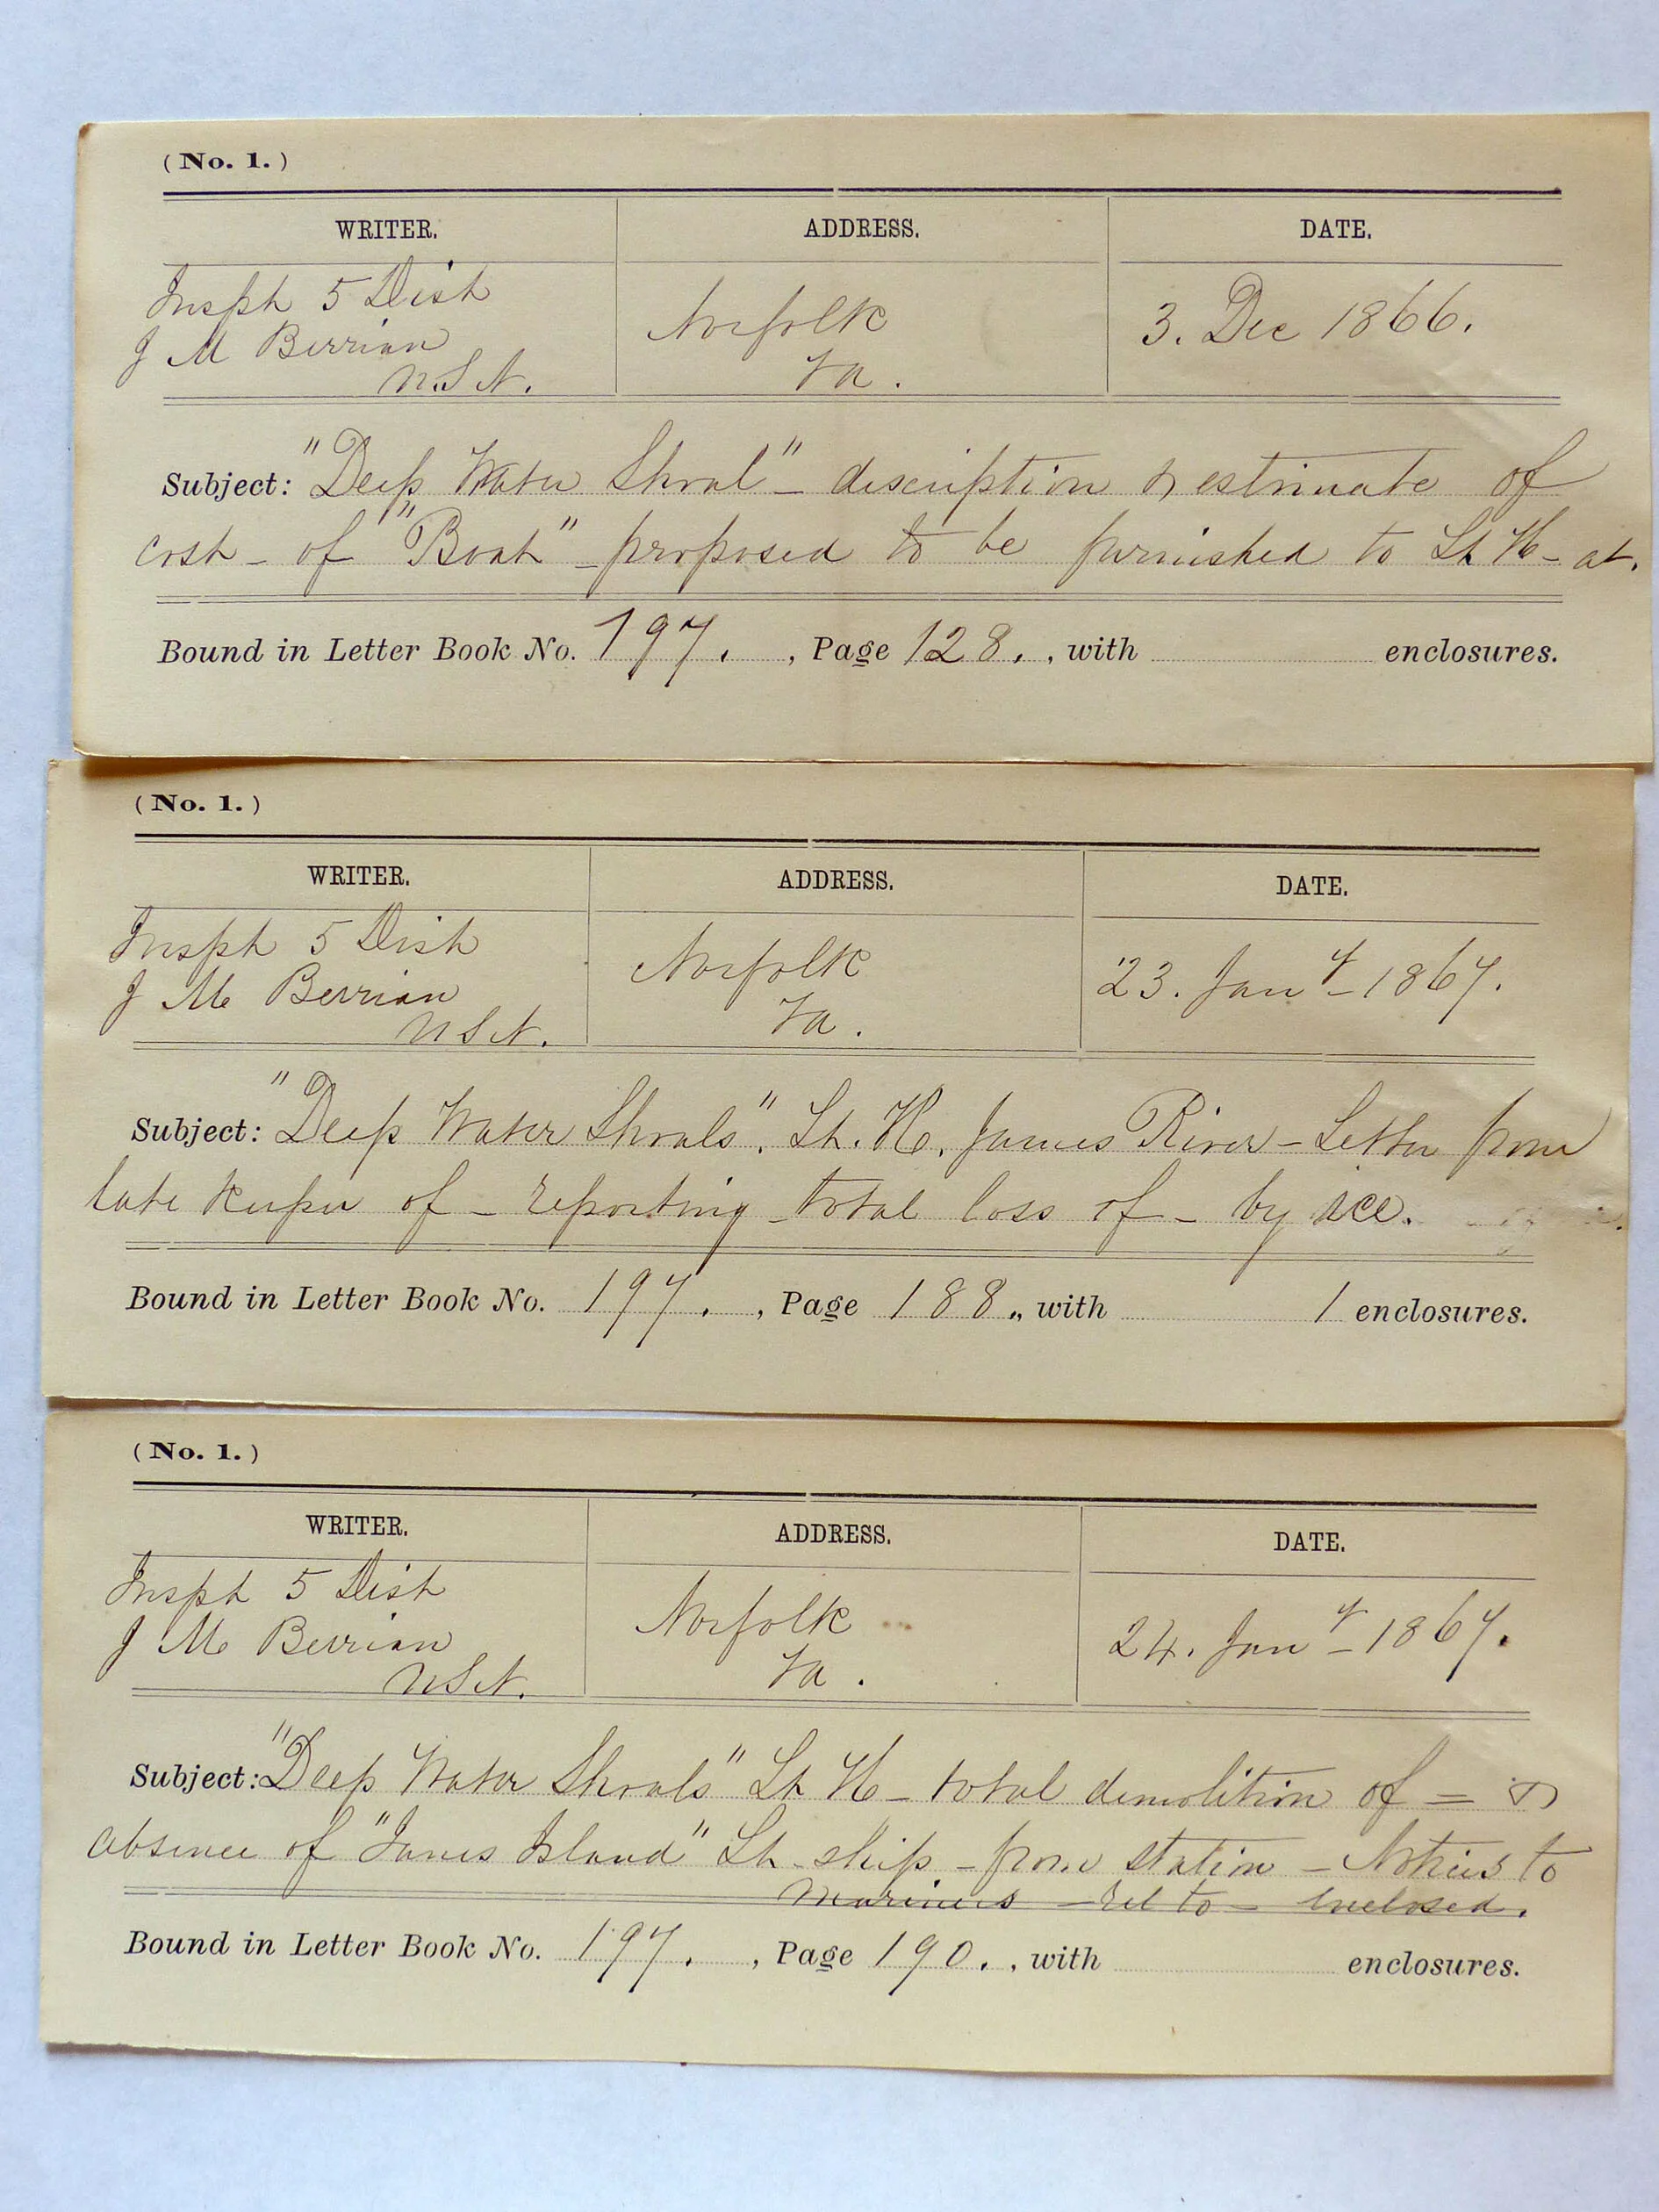 (No. 1.)
WRITER. ADDRESS. DATE.
Inspt 5 Dist
J M Berrian
U.S.N.
Norfolk
Va.
3. Dec 1866.
Subject: "Deep Water Shoal" – description & estimate of
cost – of "Boat" – proposed to be furnished to Lt H – at.
Bound in Letter Book No. 197. , Page 128. , with enclosures.
(No. 1.)
WRITER. ADDRESS. DATE.
Inspt 5 Dist
J M Berrian
U S N.
Norfolk
Va.
23. Jany – 1867.
Subject: "Deep Water Shoals". Lt. H. James River – Letter from
late keeper of – reporting – total loss of – by ice.
Bound in Letter Book No. 197. , Page 188. , with 1 enclosures.
(No. 1.)
WRITER. ADDRESS. DATE.
Inspt 5 Dist
J M Berrian
U S N.
Norfolk
Va.
24. Jany – 1867.
Subject: "Deep Water Shoals" Lt H – total demolition of = &
absence of "Janes Island" Lt ship – from station – Notices to
Mariners – rel to – enclosed.
Bound in Letter Book No. 197. , Page 190. , with enclosures.